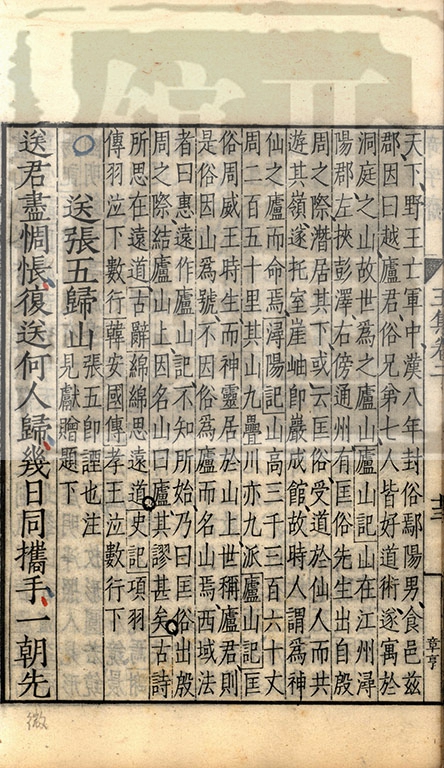 天下野王亡軍中漢八年封俗鄢陽男食邑茲
郡因曰越廬君俗兄弟七人皆好道術遂寓於
洞庭之山故世爲之廬山廬山記山在江州潯
陽郡左挾彭澤右傍通州有匡俗先生出自殷
周之際潛居其下或云匡俗受道於仙人而共
遊其嶺遂託室崖岫即巖成館故時人謂爲神
仙之廬而命焉潯陽記山高三千三百六十丈
周二百五十里其山九疊川亦九派廬山記匡
俗周威王時生而神靈居於山上世稱廬君則
是俗因山爲號不因俗爲廬而名山焉西域法
者曰惠遠作廬山記不知所始乃曰匡俗出殷
周之際結廬山上因名山曰廬其謬甚矣古詩
所思在遠道古辭綿綿思遠道史記項羽
傳羽泣下數行韓安國傳孝王泣數行下
送張五歸山張五即諲也注
見獻贈題下
送君盡惆悵復送何人歸幾日同攜手一朝先
王集卷二
十三
章亨
微